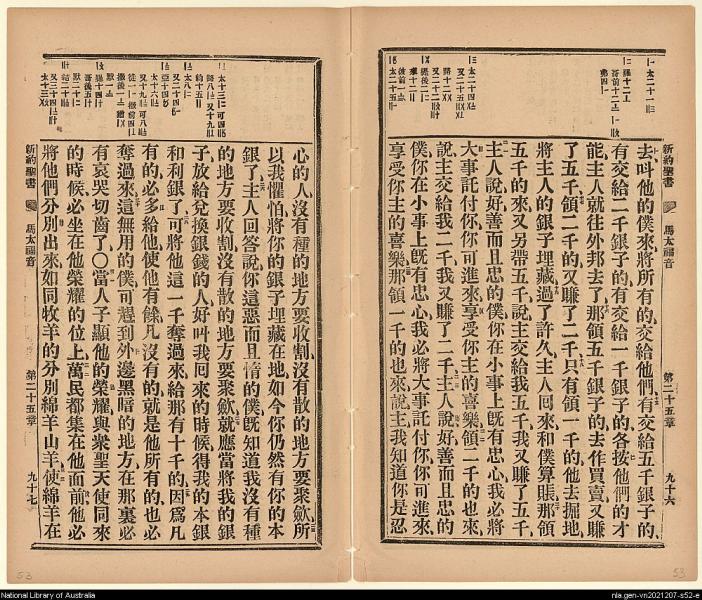 新約聖書
馬太福音
第二十五章
九十六
去叫他的僕來將所有的交給他們有交給五千銀子的
有交給二千銀子的有交給一千銀子的各按他們的才
能主人就往外邦去了那領五千銀子的去作買賣又賺
了五千領二千的又賺了二千只有領一千的他去掘地
將主人的銀子埋藏過了許久主人回來和僕算賬那領
五千的來又另帶五千說主交給我五千我又賺了五千
主人說好善而且忠的僕你在小事上旣有忠心我必將
大事託付你你可進來享受你主的喜樂領二千的也來
說主交給我二千我又賺了二千主人說好善而且忠的
僕你在小事上旣有忠心我必將大事託付你你可進來
享受你主的喜樂那領一千的也來說主我知道你是忍
心的人沒有種的地方要收割沒有散的地方要聚歛所
以我懼怕將你的銀子埋藏在地如今你仍然有你的本
銀了主人回答說你這惡而且惰的僕旣知道我沒有種
的地方要收割沒有散的地方要聚歛就應當將我的銀
子放給兌換銀錢的人好叫我回來的時候得我的本銀
和利銀了可將他這一千奪過來給那有十千的因爲凡
有的必多給他使他有餘凡沒有的就是他所有的也必
奪過來這無用的僕可趕到外邊黑暗的地方在那裏必
有哀哭切齒了〇當人子顯他的榮耀與衆聖天使同來
的時候必坐在他榮耀的位上萬民都集在他面前他必
將他們分別出來如同牧羊的分別綿羊山羊使綿羊在
新約聖書
馬太福音
第二十五章
九十七
53
53
National Library of Australia
nla.gen-vn2021207-s52-e